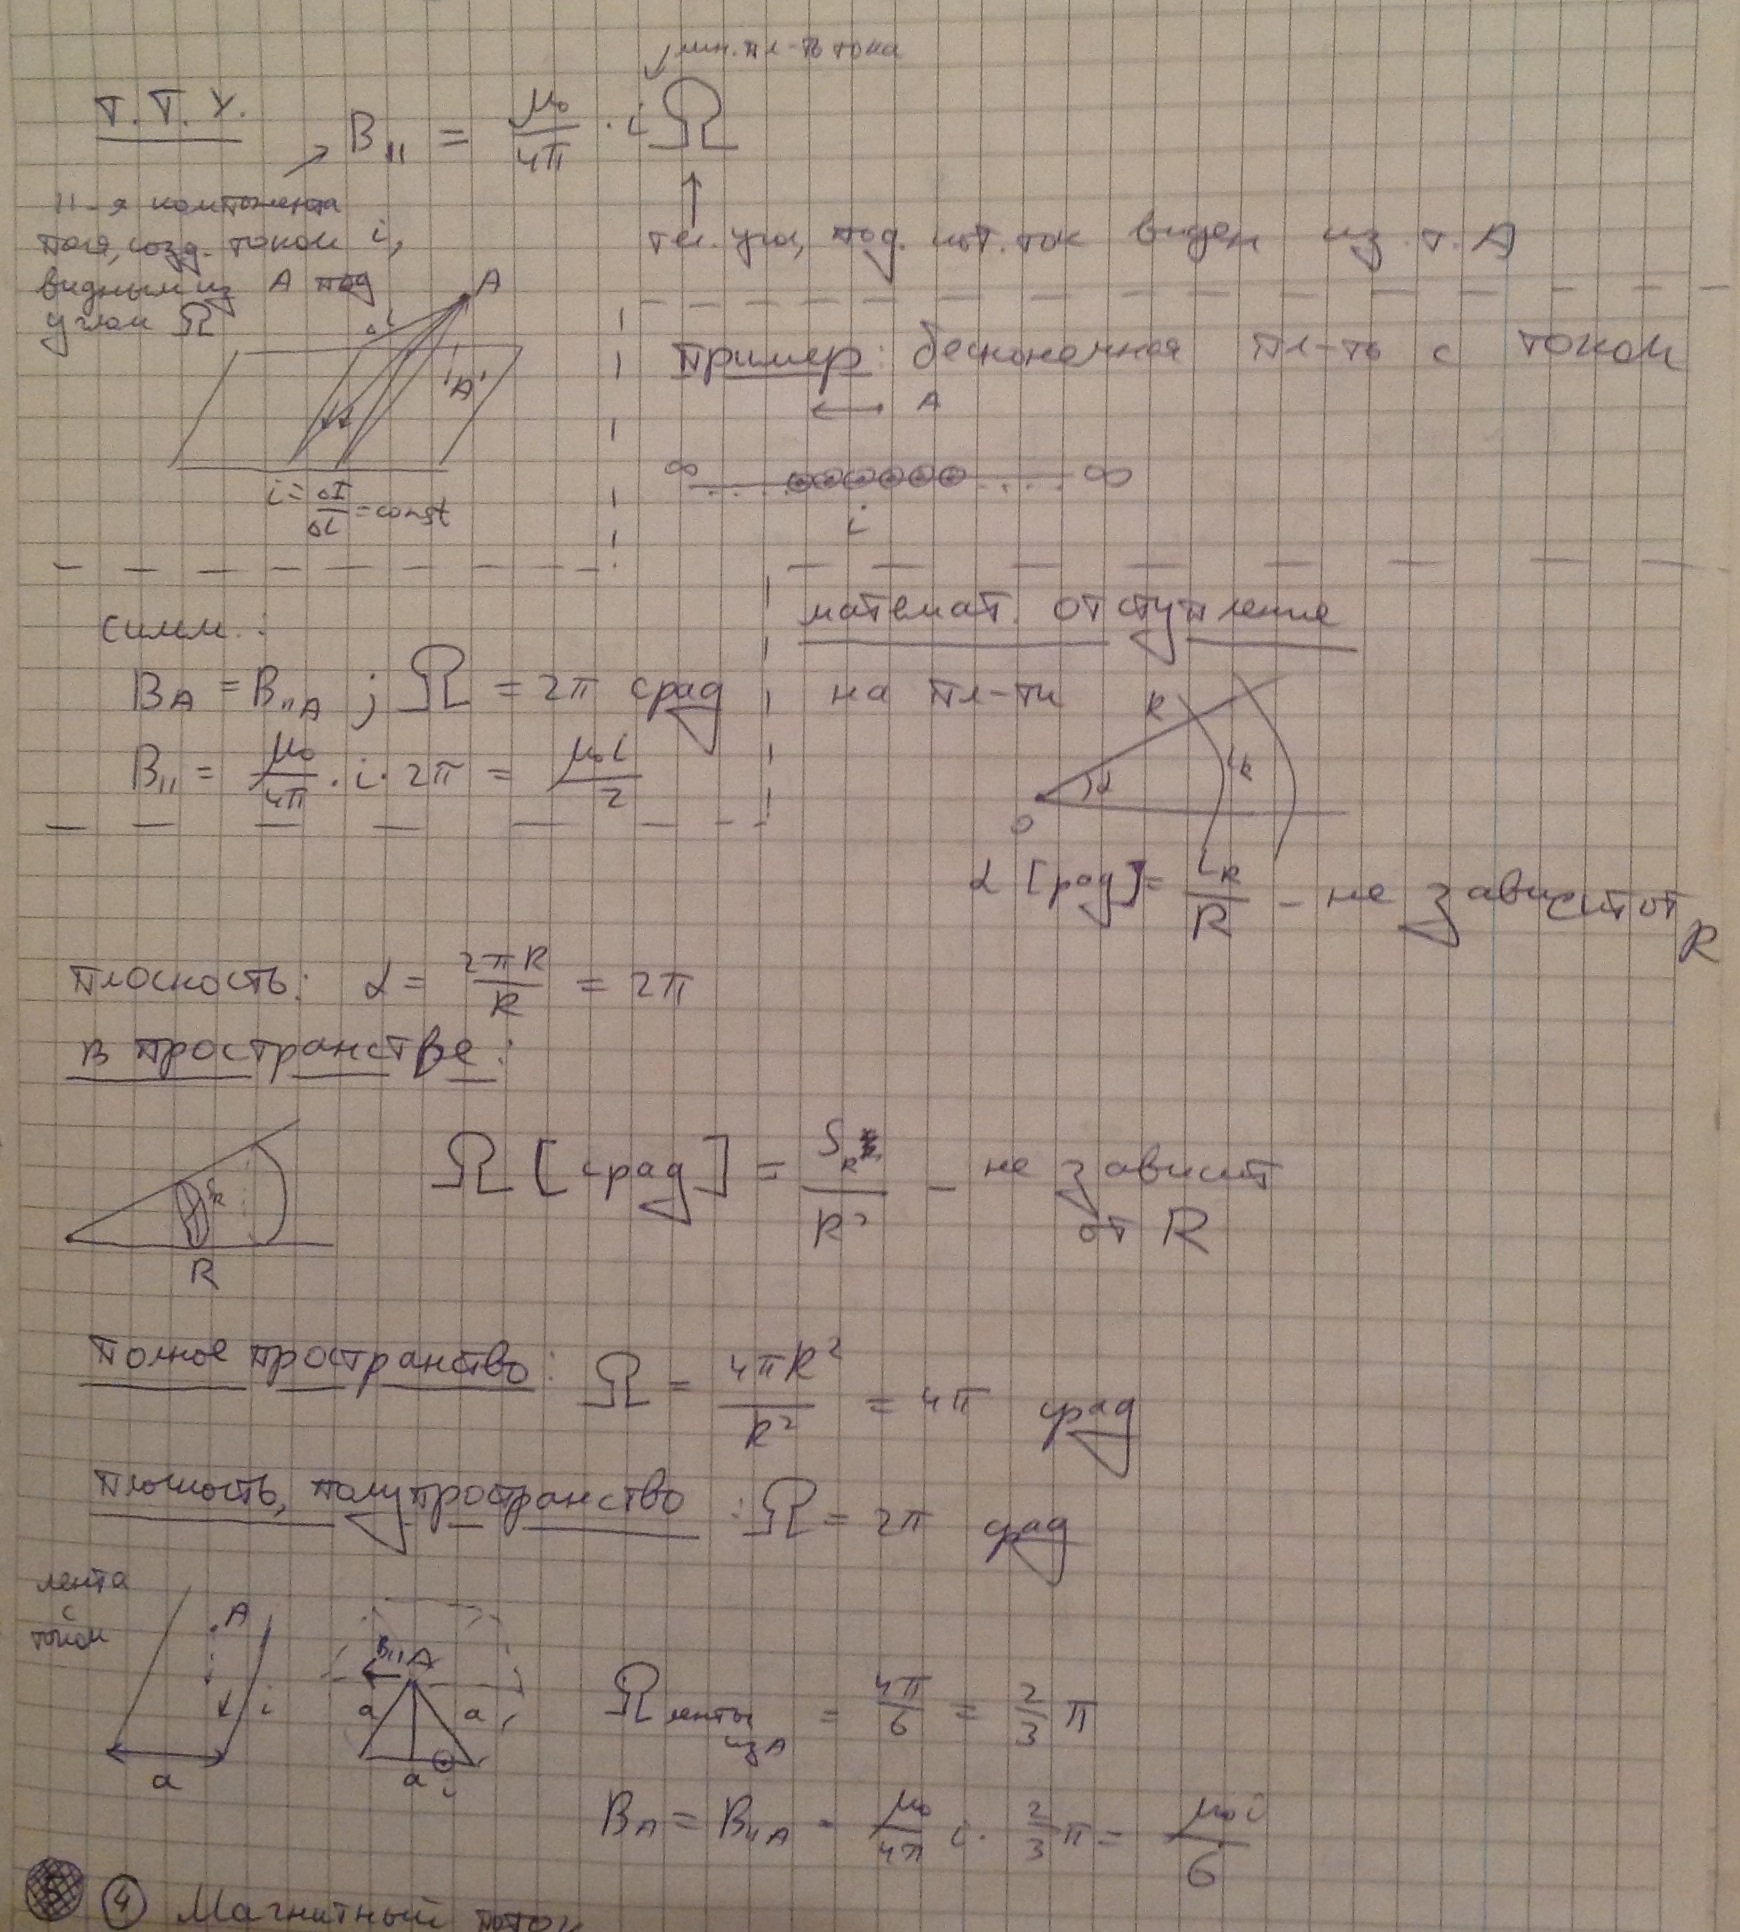 лин. пл-ть тока
Т. Т. У.
B₁₁ = μ₀/4π · i Ω
11-я компонента
поля, созд. током i,
видным из A под
углом Ω
тел. угол, под. кот. ток виден из т. A
A
ΔL
'A'
i = ΔI/ΔL = const
Пример: бесконечная пл-ть с током
A
∞ ∞
i
симм.:
B_A = B₁₁A ; Ω = 2π срад
B₁₁ = μ₀/4π · i · 2π = μ₀i/2
математ. отступление
на пл-ти
R
α
L_R
O
α [рад] = L_R/R – не зависит от R
плоскость: α = 2πR/R = 2π
в пространстве:
S_R
R
Ω [срад] = S_R/R² – не зависит
от R
Полное пространство: Ω = 4πR²/R² = 4π срад
Плоскость, полупространство: Ω = 2π срад
лента
с
током
A
i
a
B₁₁ A
a a
a i
Ω ленты из A = 4π/6 = 2/3 π
B_A = B₁₁A = μ₀/4π i · 2/3 π = μ₀i/6
4 Магнитный поток